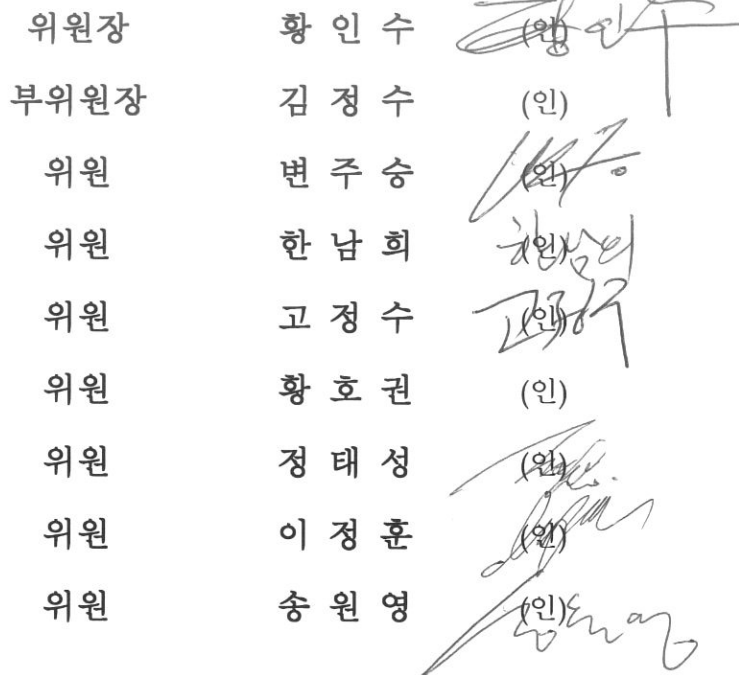 위원장 황 인 수 (인) 황인수
부위원장 김 정 수 (인)
위원 변 주 승 (인)
위원 한 남 희 (인) 한남희
위원 고 정 수 (인) 고정수
위원 황 호 권 (인)
위원 정 태 성 (인)
위원 이 정 훈 (인)
위원 송 원 영 (인) 송원영